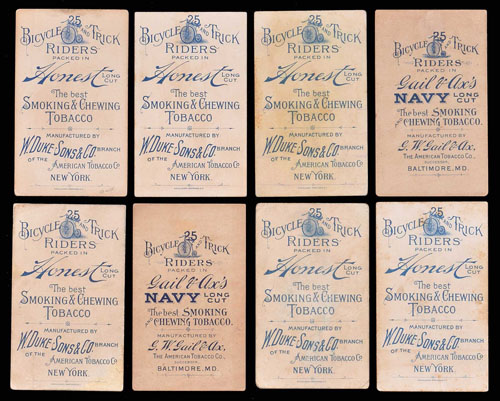 25
BICYCLE AND TRICK
RIDERS
PACKED IN
Honest LONG CUT
The best
SMOKING & CHEWING
TOBACCO
MANUFACTURED BY
W. DUKE·SONS & CO. BRANCH
OF THE AMERICAN TOBACCO CO.
NEW YORK.
25
BICYCLE AND TRICK
RIDERS
PACKED IN
Honest LONG CUT
The best
SMOKING & CHEWING
TOBACCO
MANUFACTURED BY
W. DUKE·SONS & CO. BRANCH
OF THE AMERICAN TOBACCO CO.
NEW YORK.
25
BICYCLE AND TRICK
RIDERS
PACKED IN
Honest LONG CUT
The best
SMOKING & CHEWING
TOBACCO
MANUFACTURED BY
W. DUKE·SONS & CO. BRANCH
OF THE AMERICAN TOBACCO CO.
NEW YORK.
25
BICYCLE AND TRICK
RIDERS
PACKED IN
Gail & Ax's
NAVY LONG CUT
The best SMOKING
AND CHEWING TOBACCO.
MANUFACTURED BY
G. W. Gail & Ax.
THE AMERICAN TOBACCO CO.,
SUCCESSOR,
BALTIMORE, MD.
25
BICYCLE AND TRICK
RIDERS
PACKED IN
Honest LONG CUT
The best
SMOKING & CHEWING
TOBACCO
MANUFACTURED BY
W. DUKE·SONS & CO. BRANCH
OF THE AMERICAN TOBACCO CO.
NEW YORK.
25
BICYCLE AND TRICK
RIDERS
PACKED IN
Gail & Ax's
NAVY LONG CUT
The best SMOKING
AND CHEWING TOBACCO.
MANUFACTURED BY
G. W. Gail & Ax.
THE AMERICAN TOBACCO CO.,
SUCCESSOR,
BALTIMORE, MD.
25
BICYCLE AND TRICK
RIDERS
PACKED IN
Honest LONG CUT
The best
SMOKING & CHEWING
TOBACCO
MANUFACTURED BY
W. DUKE·SONS & CO. BRANCH
OF THE AMERICAN TOBACCO CO.
NEW YORK.
25
BICYCLE AND TRICK
RIDERS
PACKED IN
Honest LONG CUT
The best
SMOKING & CHEWING
TOBACCO
MANUFACTURED BY
W. DUKE·SONS & CO. BRANCH
OF THE AMERICAN TOBACCO CO.
NEW YORK.